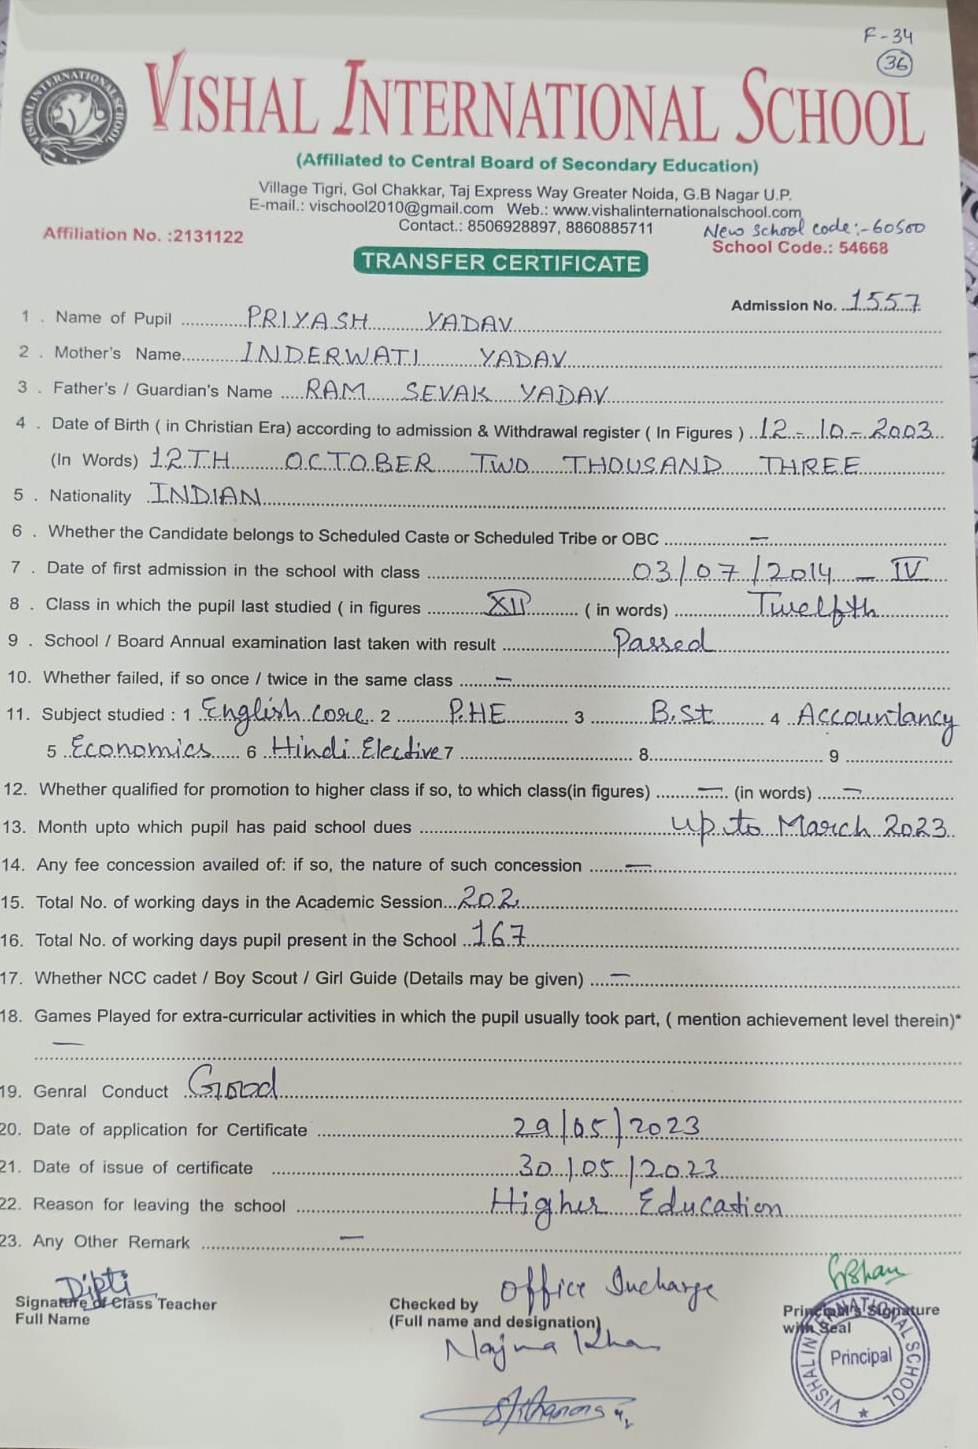 F-34
36
VISHAL INTERNATIONAL SCHOOL
VISHAL INTERNATIONAL SCHOOL
(Affiliated to Central Board of Secondary Education)
Village Tigri, Gol Chakkar, Taj Express Way Greater Noida, G.B Nagar U.P.
E-mail.: vischool2010@gmail.com Web.: www.vishalinternationalschool.com
Contact.: 8506928897, 8860885711 New school code:-60500
Affiliation No. :2131122 School Code.: 54668
TRANSFER CERTIFICATE
Admission No. 1557
1 . Name of Pupil PRIYASH YADAV
2 . Mother's Name INDERWATI YADAV
3 . Father's / Guardian's Name RAM SEVAK YADAV
4 . Date of Birth ( in Christian Era) according to admission & Withdrawal register ( In Figures ) 12-10-2003
(In Words) 12TH OCTOBER TWO THOUSAND THREE
5 . Nationality INDIAN
6 . Whether the Candidate belongs to Scheduled Caste or Scheduled Tribe or OBC —
7 . Date of first admission in the school with class 03/07/2014 – IV
8 . Class in which the pupil last studied ( in figures XII ( in words) Twelfth
9 . School / Board Annual examination last taken with result Passed
10. Whether failed, if so once / twice in the same class —
11. Subject studied : 1 English core 2 P.HE 3 B.St 4 Accountancy
5 Economics 6 Hindi Elective 7 8 9
12. Whether qualified for promotion to higher class if so, to which class(in figures) — (in words) —
13. Month upto which pupil has paid school dues up to March 2023
14. Any fee concession availed of: if so, the nature of such concession —
15. Total No. of working days in the Academic Session 202
16. Total No. of working days pupil present in the School 167
17. Whether NCC cadet / Boy Scout / Girl Guide (Details may be given) —
18. Games Played for extra-curricular activities in which the pupil usually took part, ( mention achievement level therein)*
—
19. Genral Conduct Good
20. Date of application for Certificate 29/05/2023
21. Date of issue of certificate 30/05/2023
22. Reason for leaving the school Higher Education
23. Any Other Remark —
Dipti
Signature of Class Teacher
Full Name
Checked by Office Incharge
(Full name and designation)
Najma Khan
Principal's Signature
with Seal
VISHAL INTERNATIONAL SCHOOL
Principal